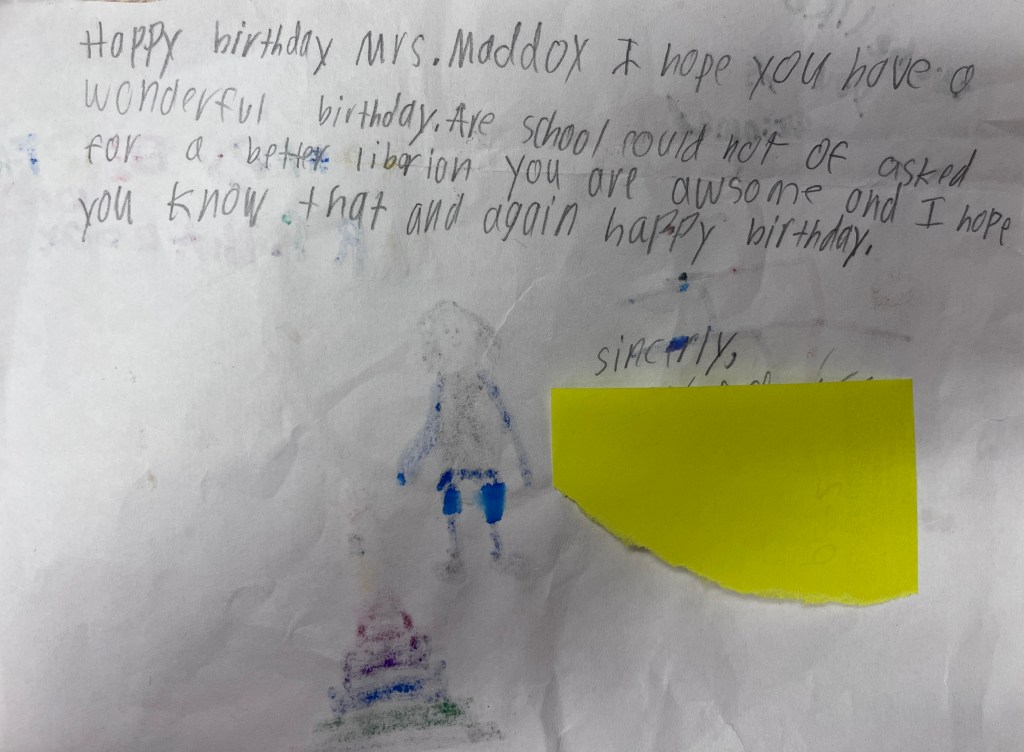 Happy birthday Mrs. Maddox I hope you have a
wonderful birthday. Are school could not of asked
for a better libarion you are awsome and I hope
you know that and again happy birthday.
sincerly,